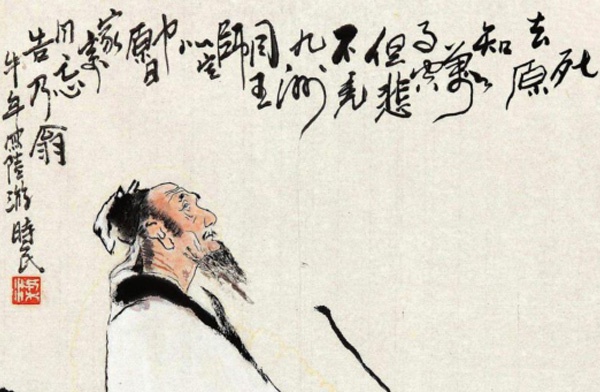 死
去原
知
萬
事空
但悲
不見
九洲
同王
師
北定
中
原日
家祭
毋忘
告乃翁
午年寫陸游時民